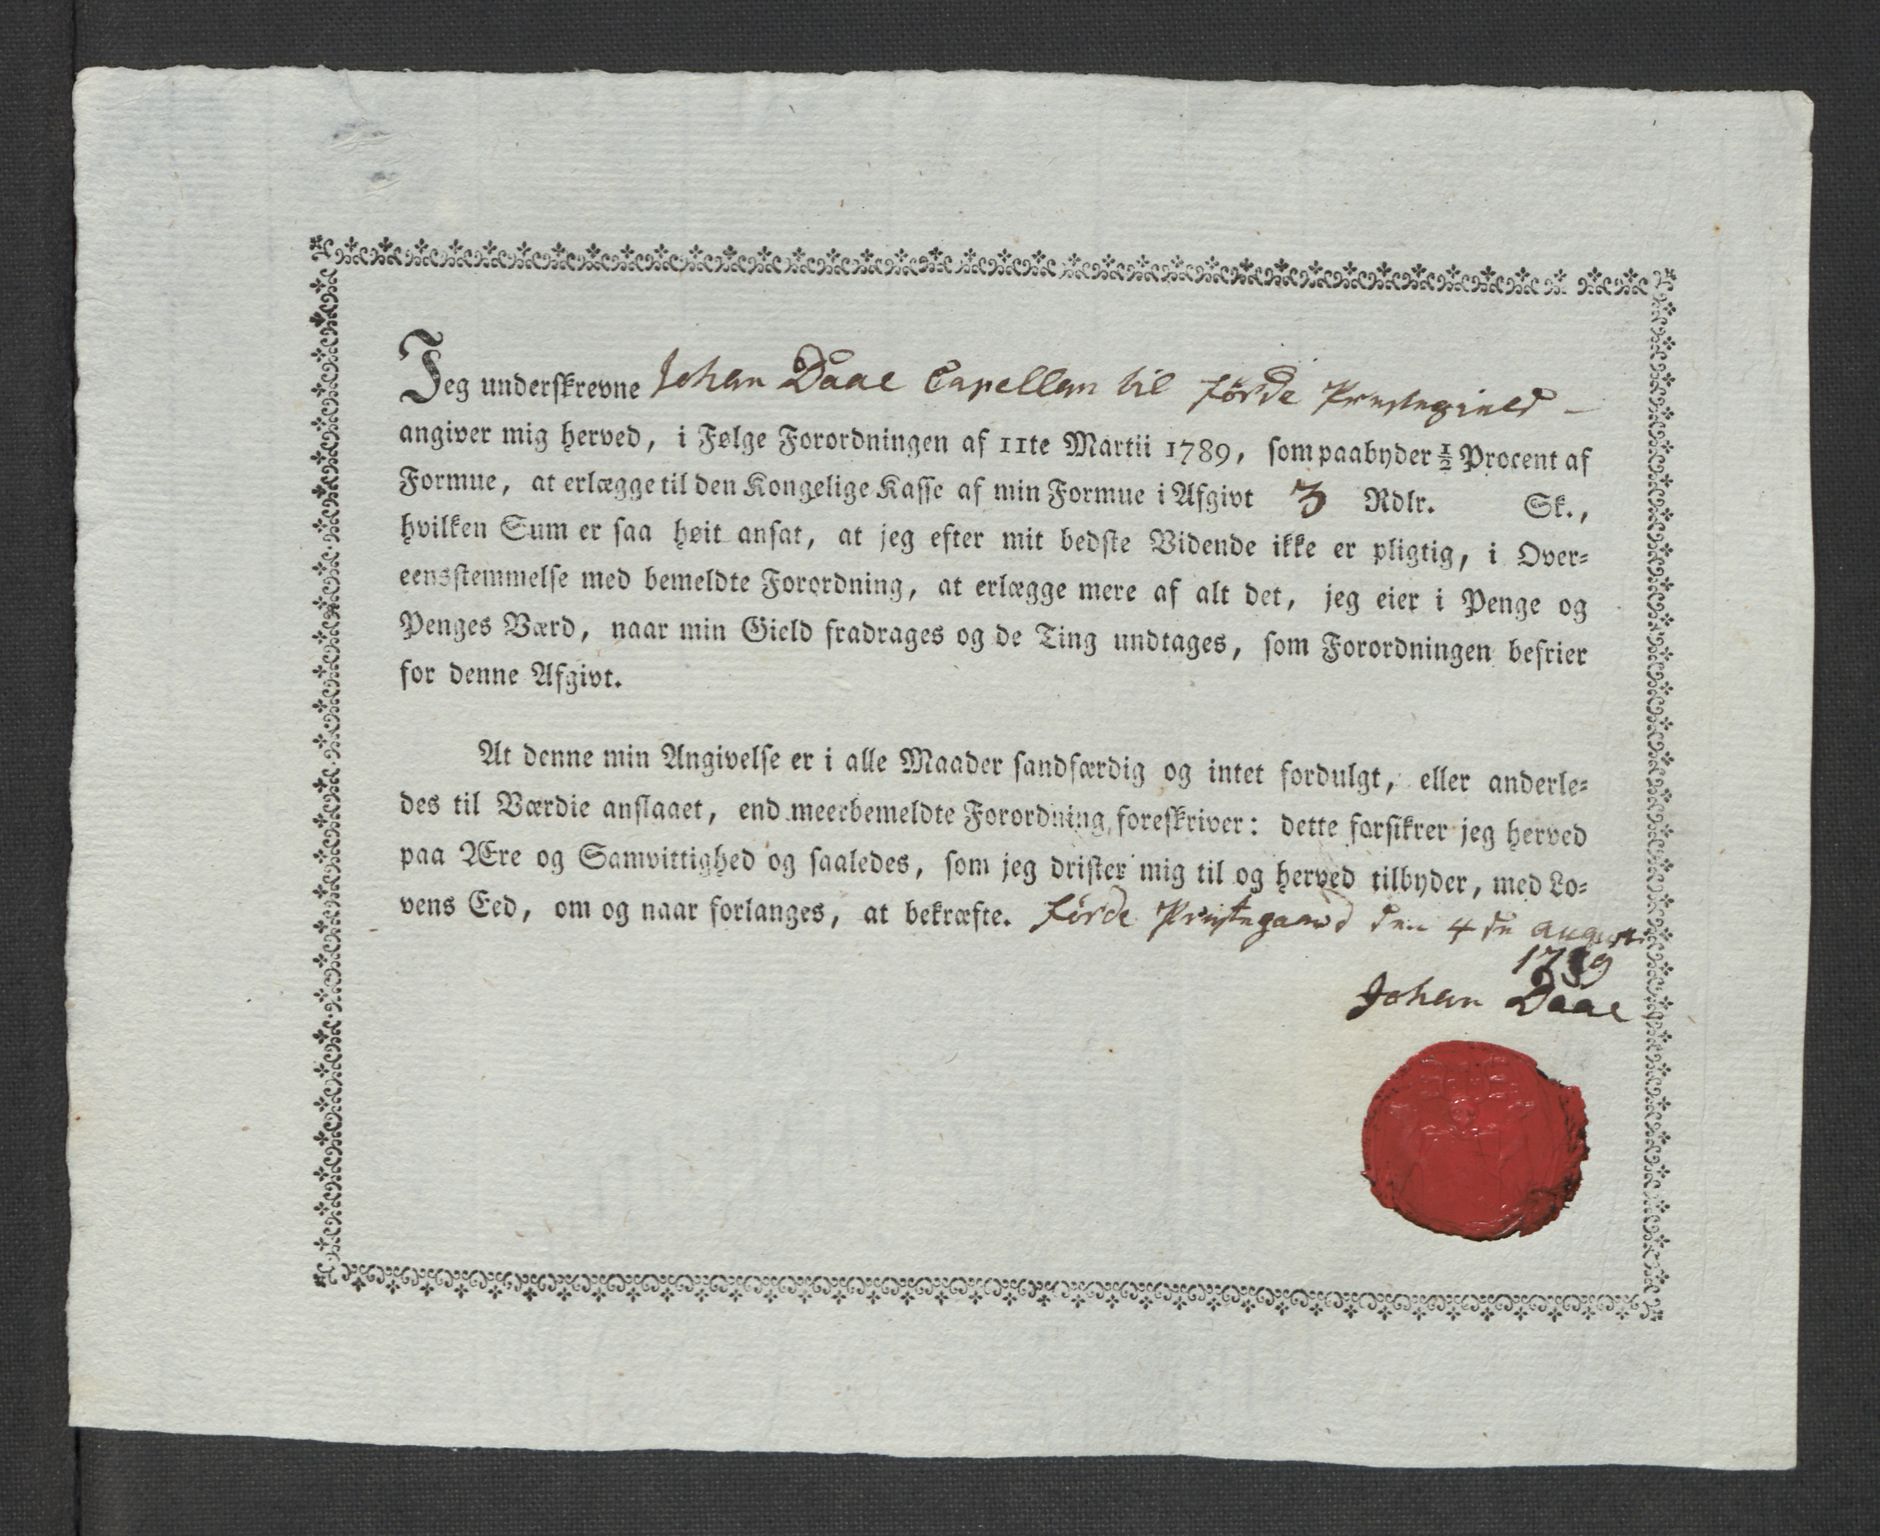 Jeg underskrevne Johan Daae Capellan til Førde Præstegield -
angiver mig herved, i Følge Forordningen af 11te Martii 1789, som paabyder ½ Procent af
Formue, at erlægge til den Kongelige Kasse af min Formue i Afgivt 3 Rdlr. Sk.,
hvilken Sum er saa høit ansat, at jeg efter mit bedste Vidende ikke er pligtig, i Over-
eensstemmelse med bemeldte Forordning, at erlægge mere af alt det, jeg eier i Penge og
Penges Værd, naar min Gield fradrages og de Ting undtages, som Forordningen befrier
for denne Afgivt.
At denne min Angivelse er i alle Maader sandfærdig og intet fordulgt, eller anderle-
des til Værdie anslaaet, end meerbemeldte Forordning foreskriver: dette forsikrer jeg herved
paa Ære og Samvittighed og saaledes, som jeg drister mig til og herved tilbyder, med Lo-
vens Eed, om og naar forlanges, at bekræfte. Førde Præstegaard den 4de august
1789
Johan Daae